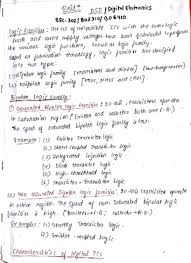 Unit-5 DSD / Digital Electronics
BEC-302/BOE310/BOE410
Logic Families: The set of compatible ICs with the same logic
levels and same supply voltages have been fabricated to perform
the various logic functions, known as logic family.
Based on fabrication technology, logic families are classified
into two types:
1) Bipolar logic family [Transistors and diodes]
2) Unipolar logic family [PMOS, NMOS and CMOS]
Bipolar Logic Family:
1) Saturated Bipolar logic families: In this, transistors operate
in saturation region
The speed of saturated bipolar logic family is low.
Example:- 1) Resistor Transistor logic
2)
3) Integrated injection logic
4) Diode-transistor logic
5) High-threshold logic
6) Transistor-Transistor logic
2) Non saturated bipolar logic families: In this transistors operate
in active region. The speed of non-saturated bipolar logic
families is high.
Example:- 1) Schottky Transistor logic
2) Emitter-coupled logic
Characteristics of Digital ICs